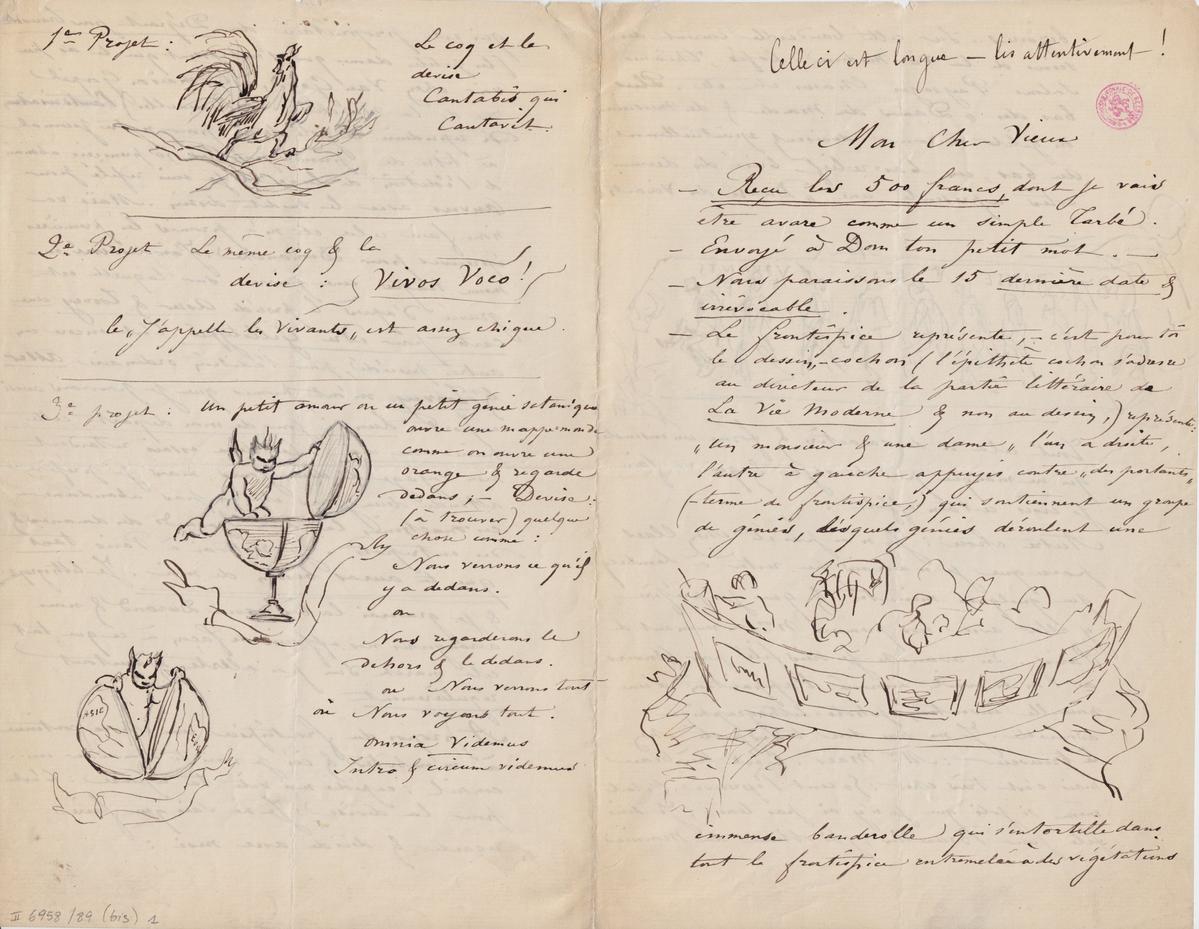 1er Projet :
Le coq et la
devise
Cantabit qui
Cantavit.
2e Projet Le même coq & la
devise : Vivos Voco !
le „J'appelle les Vivants„ est assez chique.
3e projet : un petit amour ou un petit génie satanique
ouvre une mappemonde
comme on ouvre une
orange & regarde
dedans ; — Devise :
(à trouver) quelque
chose comme :
Nous verrons ce qu'il
y a dedans.
ou
Nous regarderons le
dehors & le dedans.
ou Nous verrons tout —
ou Nous voyons tout.
omnia Videmus
Intro & circum videmus
ASIE
II 6958 / 89 (bis) 1
Celle ci est longue — lis attentivement !
Mon Cher Vieux
— Reçu les 500 francs, dont je vais
être avare comme un simple Tarbé.
— Envoyé à Dom ton petit mot. —
— Nous paraissons le 15 dernière date &
irrévocable.
— Le frontispice représente, — c'est pour toi
le dessin, — cochon (l'épithète cochon s'adresse
au directeur de la partie littéraire de
La Vie Moderne & non au dessin,) représente :
„un monsieur & une dame„ l'un a droite,
l'autre à gauche appuyés contre „des portants„
(— terme de frontispice,) qui soutiennent un groupe
de génies, lesquels génies déroulent une
immense banderolle qui s'entortille dans
tout le frontispice entremelée à des végétations